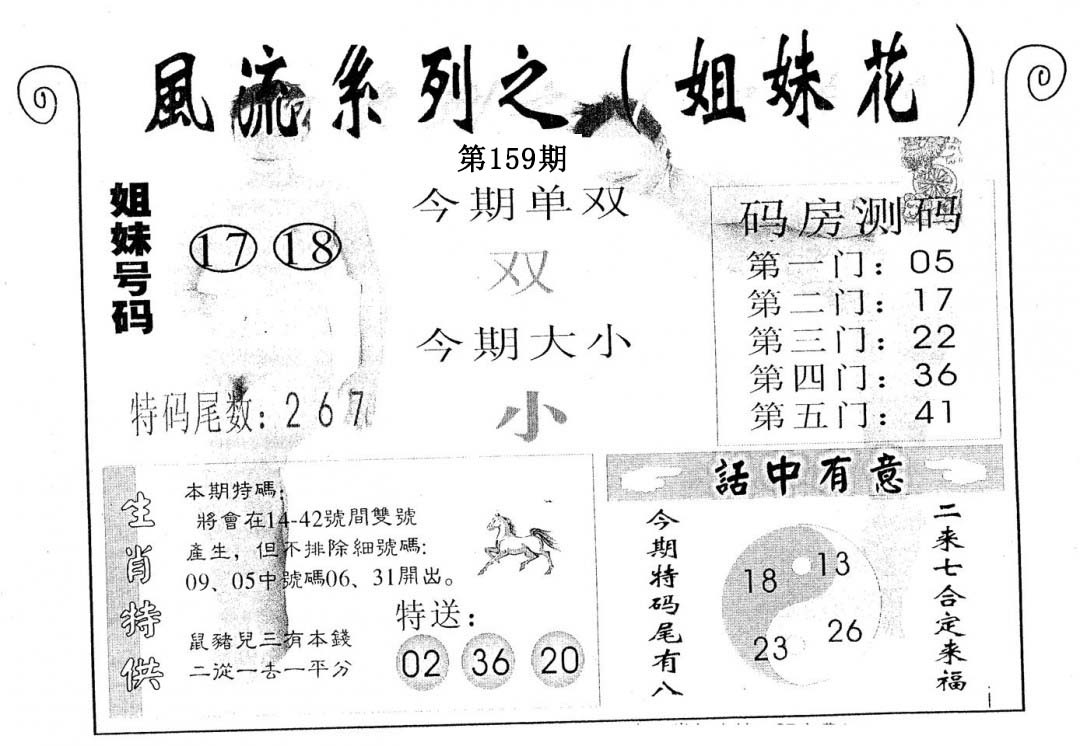 風流系列之（姐妹花）
第159期
姐妹号码
17 18
特码尾数：267
今期单双
双
今期大小
小
码房测码
第一门：05
第二门：17
第三门：22
第四门：36
第五门：41
生肖特供
本期特碼：
將會在14-42號間雙號
產生，但不排除細號碼：
09、05中號碼06、31開出。
鼠豬兒三有本錢
二從一去一平分
特送：
02 36 20
話中有意
今期特码尾有八
18 13
23 26
二来七合定来福